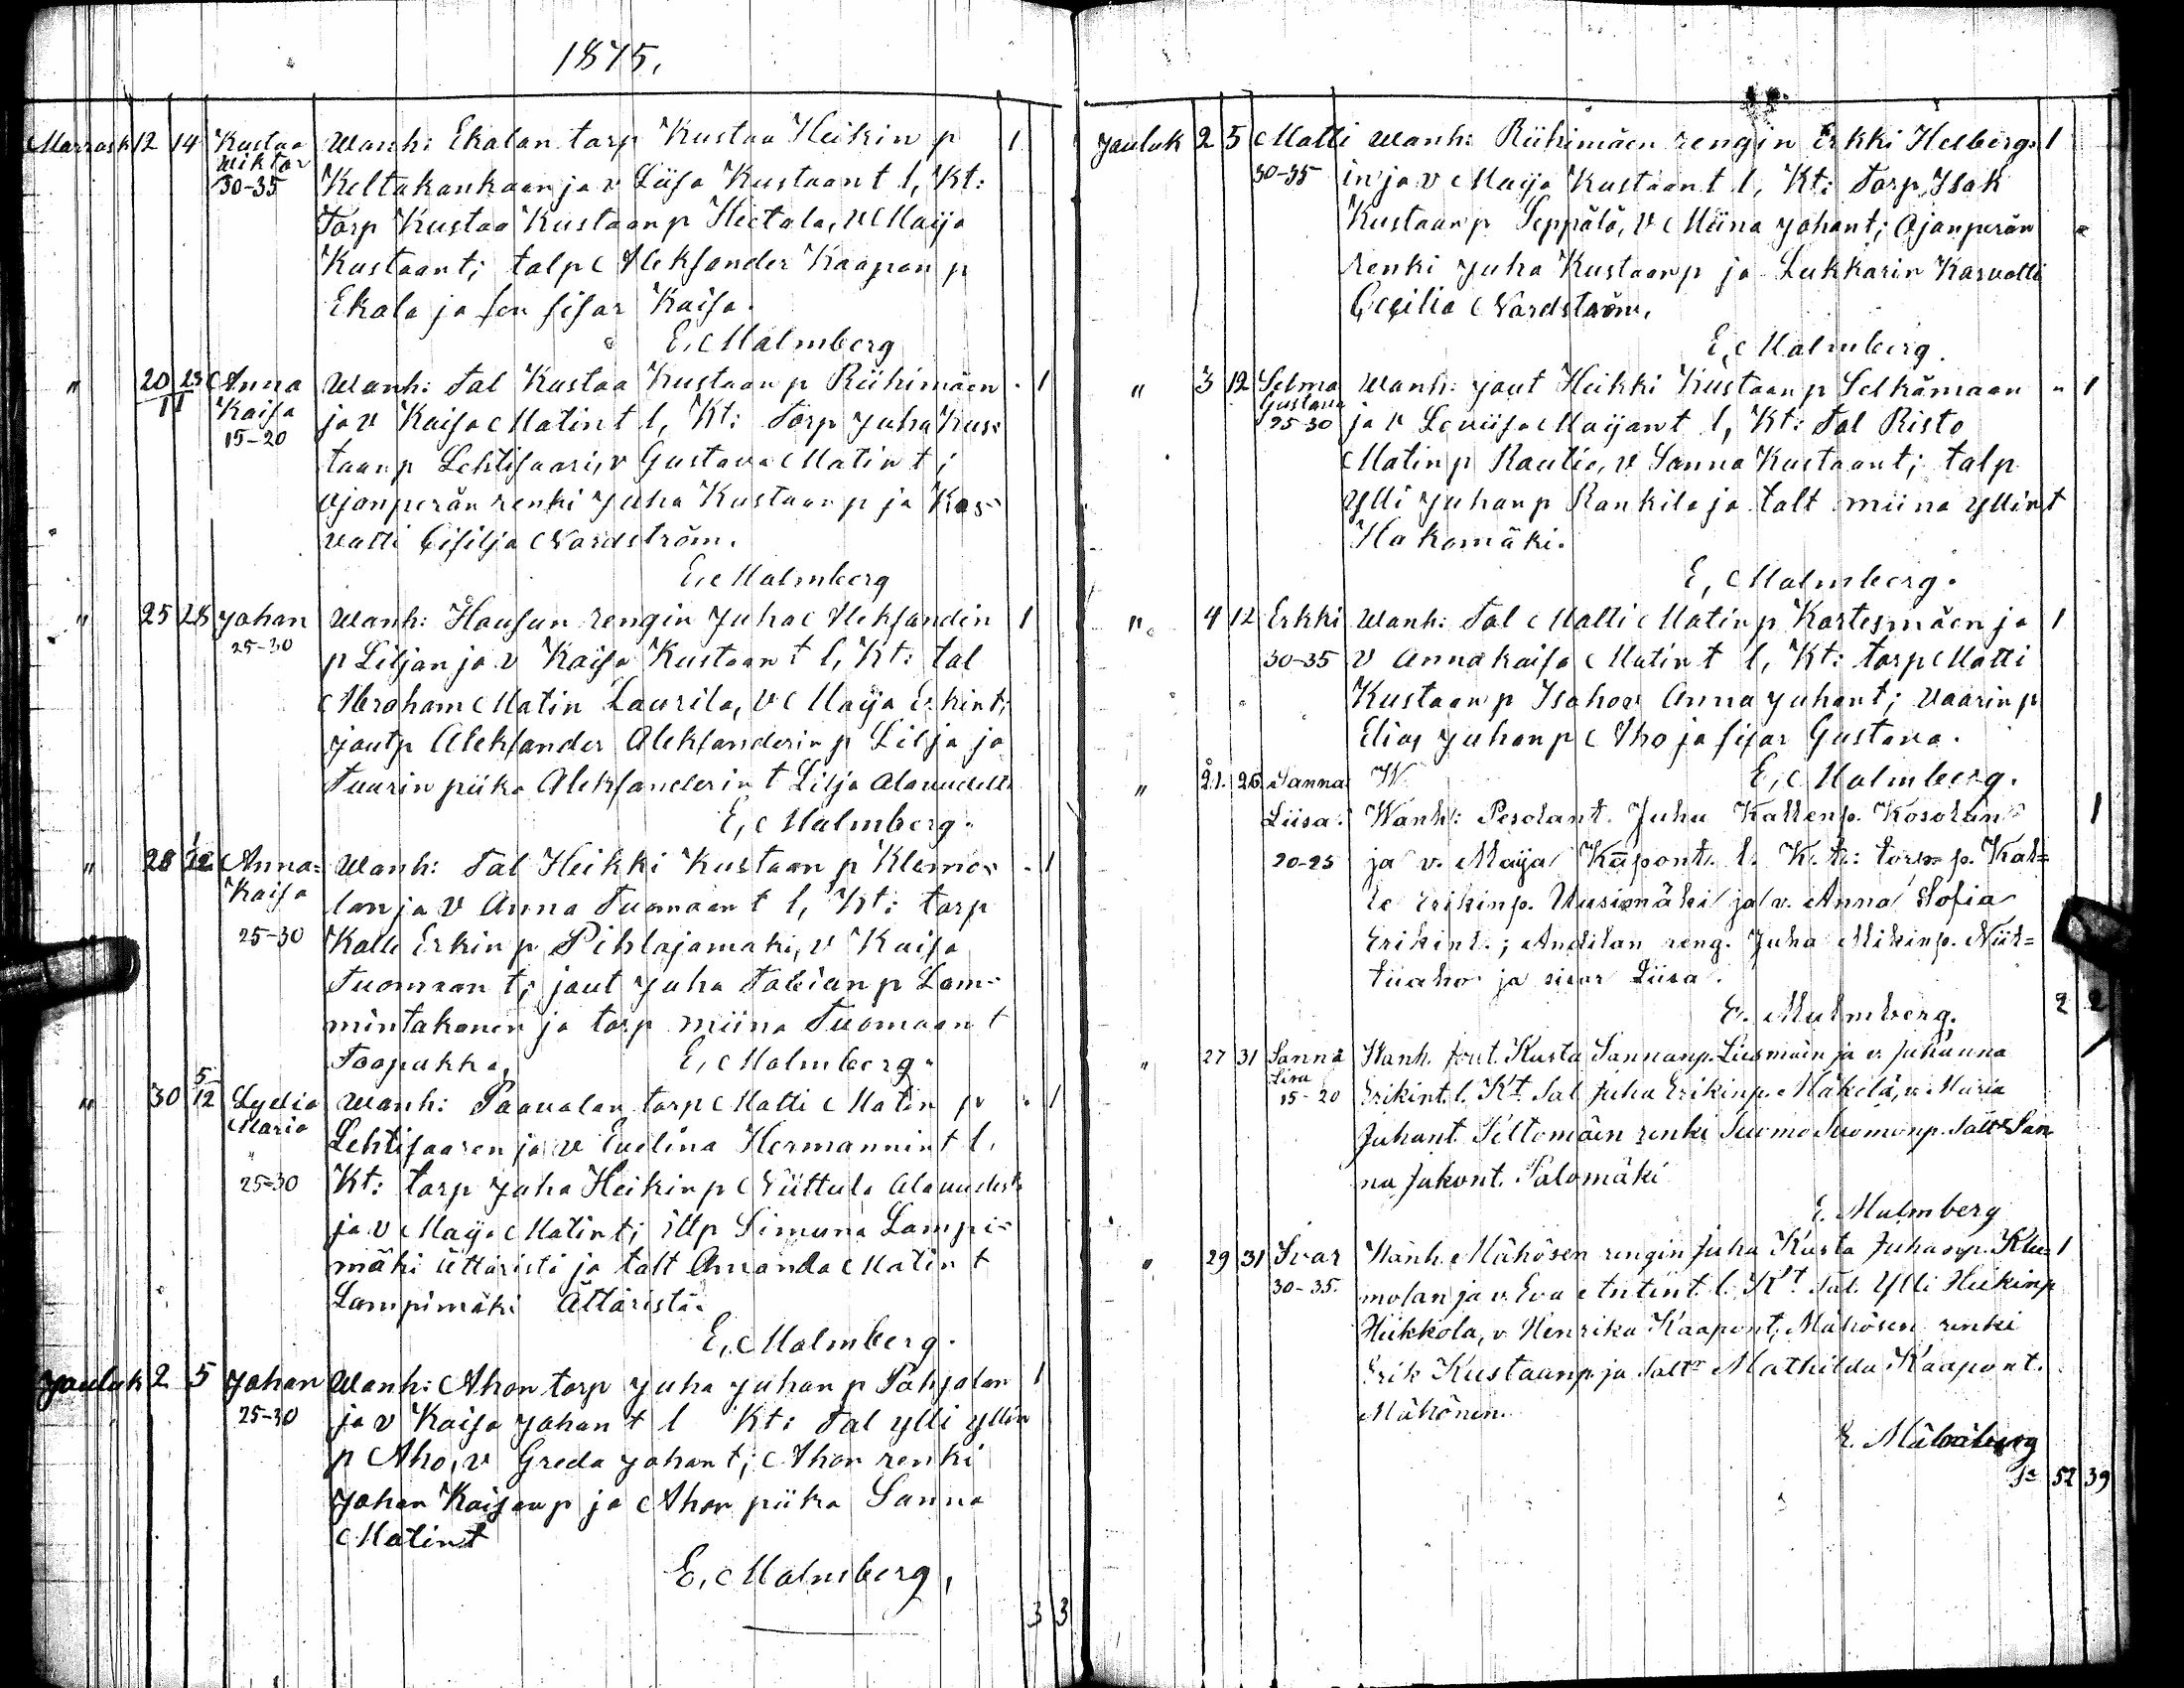 1875.
Marrask 12 14 Kustaa Wanh: Ekalan torp Kustaa Heikin p 1
Wiktor
30-35 Keltakankaan ja v Liisa Kustaan t l, Kt:
Torp Kustaa Kustaan p Hietala, v Maija
Kustaant; talp Aleksander Kaapon p
Ekola ja sen sisar Kaisa.
E, Malmberg
" 20 Anna Wanh: Tal Kustaa Kustaan p Riihimäen - 1
11 Kaisa ja v Kaisa Matin t l, Kt: Torp Juha Kus=
15-20
taan p Lehtisaari, v Gustava Matin t;
Ojanperän renki Juha Kustaan p ja Kas=
vatti Cisilja Nordström.
E, Malmberg
" 25 28 Johan Wanh: Haufun rengin Juha Aleksandin 1
25-30 p Liljan ja v Kaisa Kustaan t l, Kt: tal
Abraham Matin Laurila, v Maija Erkint;
jout p Aleksander Aleksanderin p Lilja ja
Tuurin piika Aleksanderin t Lilja Alavudelt
E, Malmberg.
" 28 Anna= Wanh: Tal Heikki Kustaan p Klemo= - 1
Kaisa lan ja v Anna Tuomaan t l, Kt: torp
25-30 Kalle Erkin p Pihlajamaki, v Kaisa
Tuomaan t; jout Juha Tobian p Lam=
mintakanen ja torp miina Tuomaan t
Toopakka, E, Malmberg.
" 30 5/12 Lydia Wanh: Paavolan torp Matti Matin p " 1
Maria Lehtisaaren ja v Evelina Hermannin t l,
25=30 Kt: torp Juha Heikin p Niittula Alavudest
ja v Maija Matint; itlp Simuna Lampi=
mäki Ättäristi ja talt Amanda Matin t
Lampimäki Ättäristä.
E, Malmberg.
Jouluk 2 5 Johan Wanh: Ahon torp Juha Juhan p Pohjolan 1
25-30 ja v Kaisa Johan t l Kt: Tal ylli yllin
p Aho, v Greda Johan t; Ahon renki
Johan Kaisan p ja Ahon piika Sanna
Matint
E, Malmberg,
3 3
Jouluk 2 5 Matti Wanh: Riihimäen rengin Erkki Helberg= 1
30-35 in ja v Maija Kustaan t l, Kt: Torp, Isak
Kustaan p Seppälä, v Miina Johant; Ojanperän
renki Juha Kustaan p ja Lukkarin Kasvatti
Cecilia Nordström,
E, Malmberg.
" 3 12 Selma Wanh: jout Heikki Kustaan p Selkämaan " 1
Gustava
25-30 ja v Loviisa Maijan t l, Kt: Tal Risto
Matin p Rautio, v Sanna Kustaant; talp
Ylli Juhan p Rankila ja talt miina Yllin t
Hakomäki.
E, Malmberg.
" 4 12 Erkki Wanh: Tal Matti Matin p Kortesmäen ja 1
30-35 v Annakaisa Matin t l, Kt: torp Matti
Kustaan p Isoho v Anna Juhant; Vaarin p
Elias Juhan p Aho ja sisar Gustava.
" 21. 26 Sanna W E, Malmberg.
Liisa. Wanh: Pesolant. Juha Kallenp. Kosolan 1
20-25 ja v. Maija Kaapont. l. K.t.: torp. p. Kal=
le Erikinp. Uusimäki ja v. Anna Sofia
Erikint.; Anttilan reng. Juha Mikinp. Niit=
tuaho ja sisar Liisa.
E. Malmberg. 2 2
" 27 31 Sanna Wanh. jout. Kusta Sannanp. Liismain ja v. Juhanna
Lisa
15-20 Erikint. l. Kt. Tal Juha Erikinp. Mäkelä, v. Maria
Juhant. Peltomäen renki Tuomo Tuomonp. Talt San
na Jakont. Palomäki
E. Malmberg
" 29 31 Ivar Wanh. Mähösen rengin Juha Kusta Juhanp. Kle= 1
30-35. molan ja v. Eva Antint. l. Kt. Tal. Ylli Heikinp
Heikkola, v. Henrika Kaapont; Mähösen renki
Erik Kustaanp. ja Talt Mathilda Kaapont.
Mähönen.
E. Malmberg
Sa 52 39